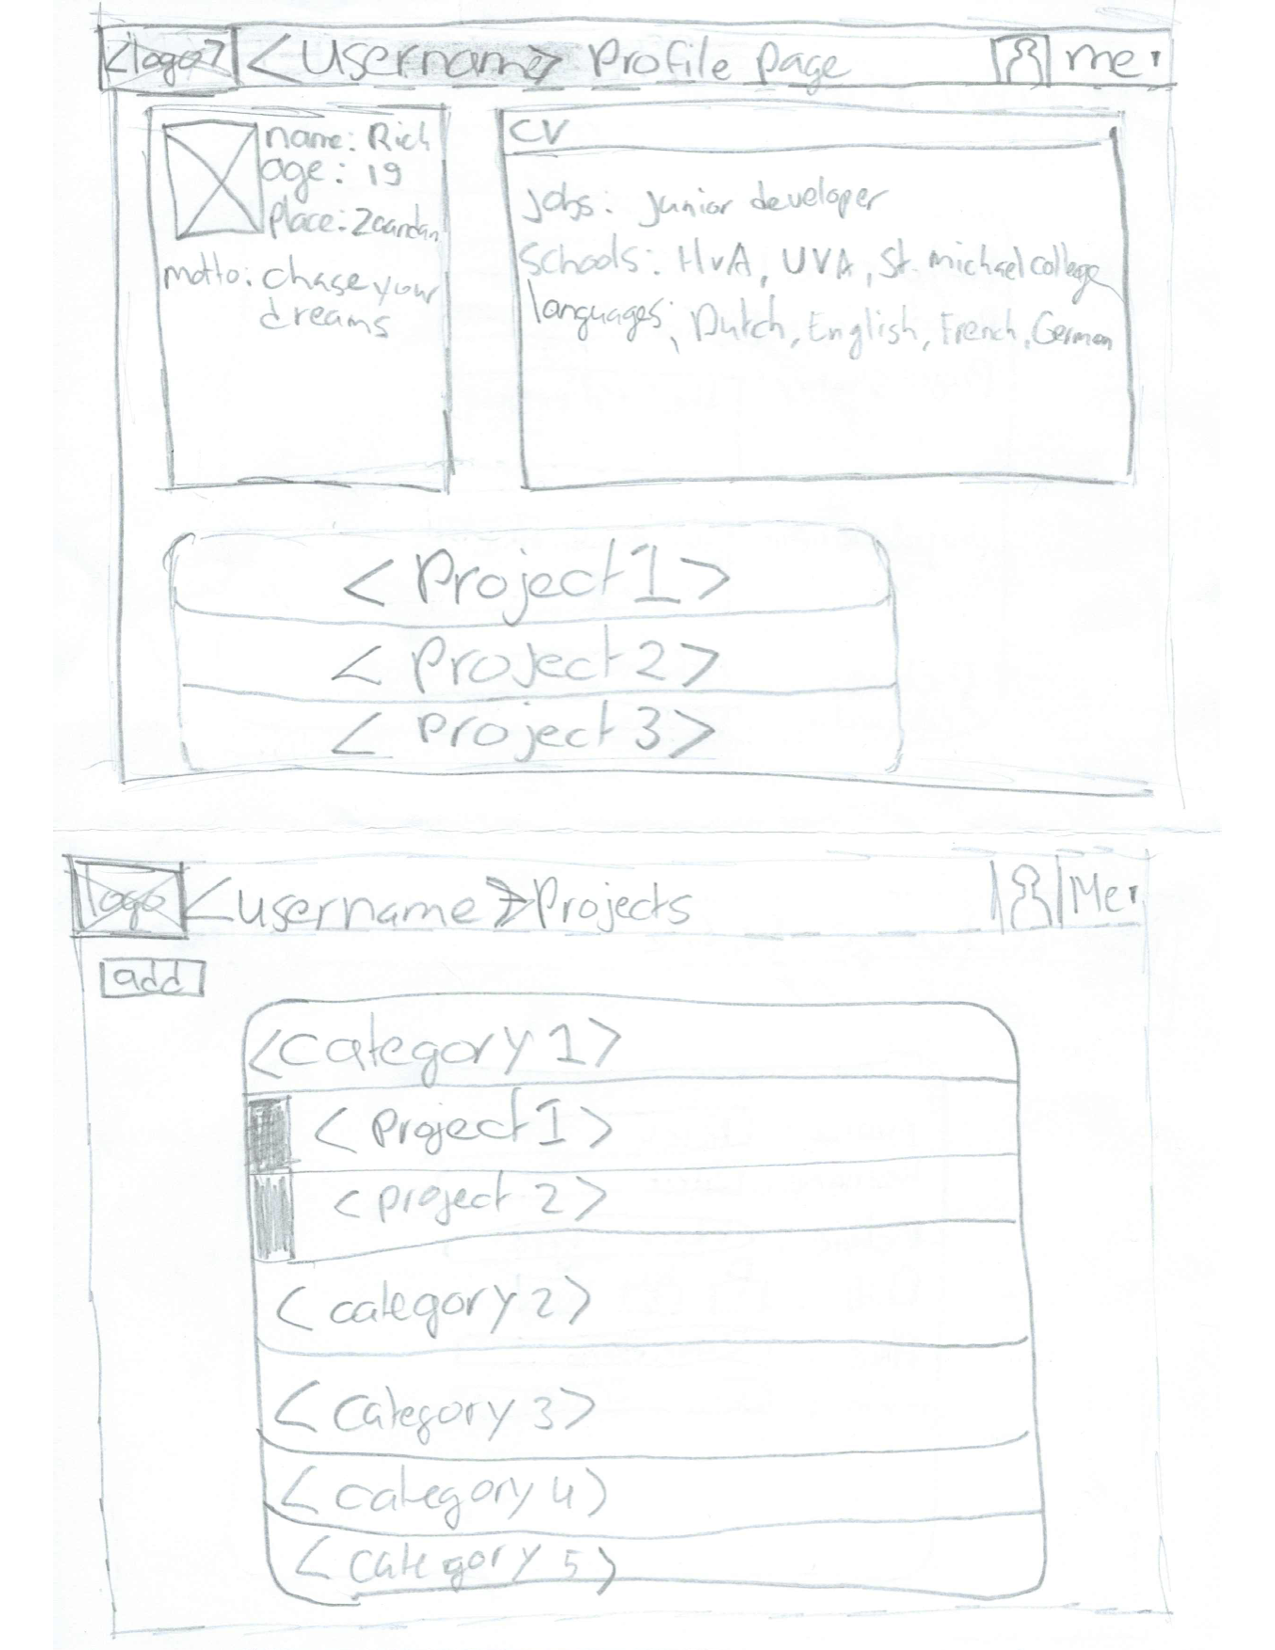 <logo> <Username> Profile Page me
name: Rich
age: 19
place: Zaandam
motto: chase your
dreams
CV
Jobs: junior developer
Schools: HvA, UVA, St. michael college
languages: Dutch, English, French, German
<Project 1>
<Project 2>
<Project 3>
logo <username> Projects Me
add
<Category 1>
<Project 1>
<project 2>
<category 2>
<Category 3>
<category 4>
<category 5>